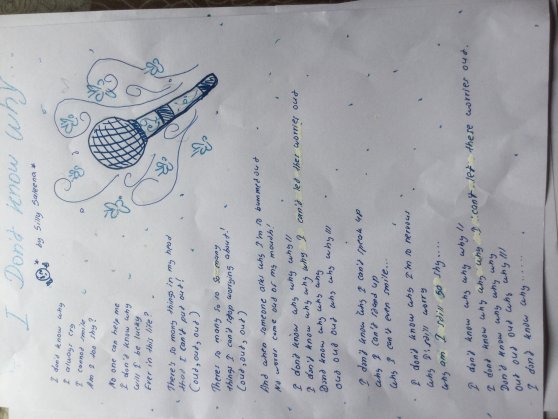 I Don't know why...
* by Silly Saleena *
I don't know why
I always cry
I cannot smile
Am I too shy?
No one can help me
I don't know why
Will I be lucky
Ever in this life?
There's so many things in my head
that I can't put out!
(out, out, out)
There's so many so so so many
things I can't stop worrying about!
(out, out, out)
And when someone asks why I'm so bummed out
No words come out of my mouth!
I don't know why why why!!
I don't know why why why I can't let these worries out
Dont know why why why
out out out why why why!!!
I don't know why I can't speak up
why I can't stand up
why I can't even smile...
I don't know why I'm so nervous
why I still worry
why am I still so shy....
I don't know why why why!!
I dont know why why why I can't let these worries out.
Dont know why why why
Out out out why why why!!!
I don't know why......